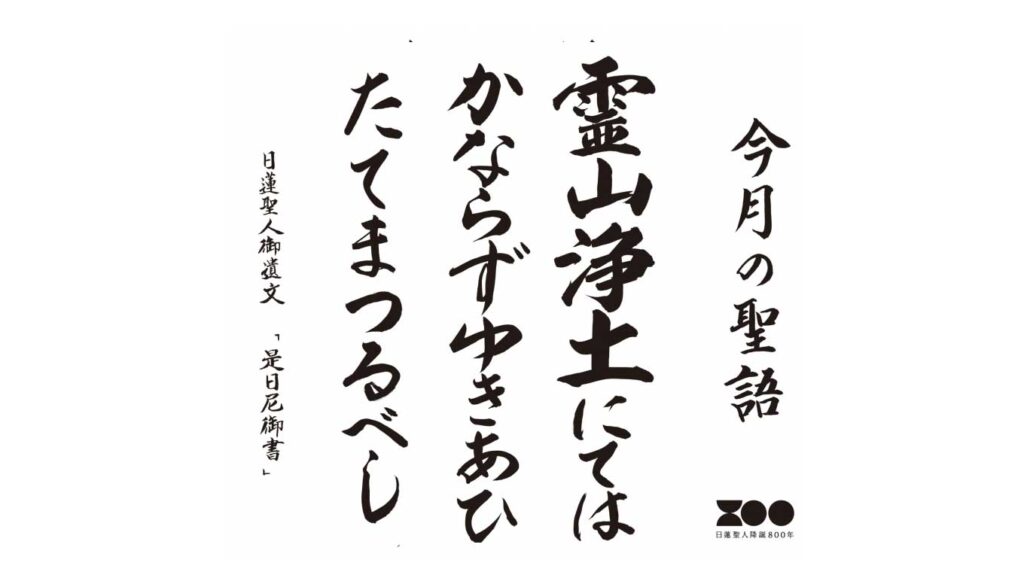 今月の聖語
霊山浄土にては
かならずゆきあひ
たてまつるべし
日蓮聖人御遺文 「是日尼御書」
日蓮聖人降誕800年